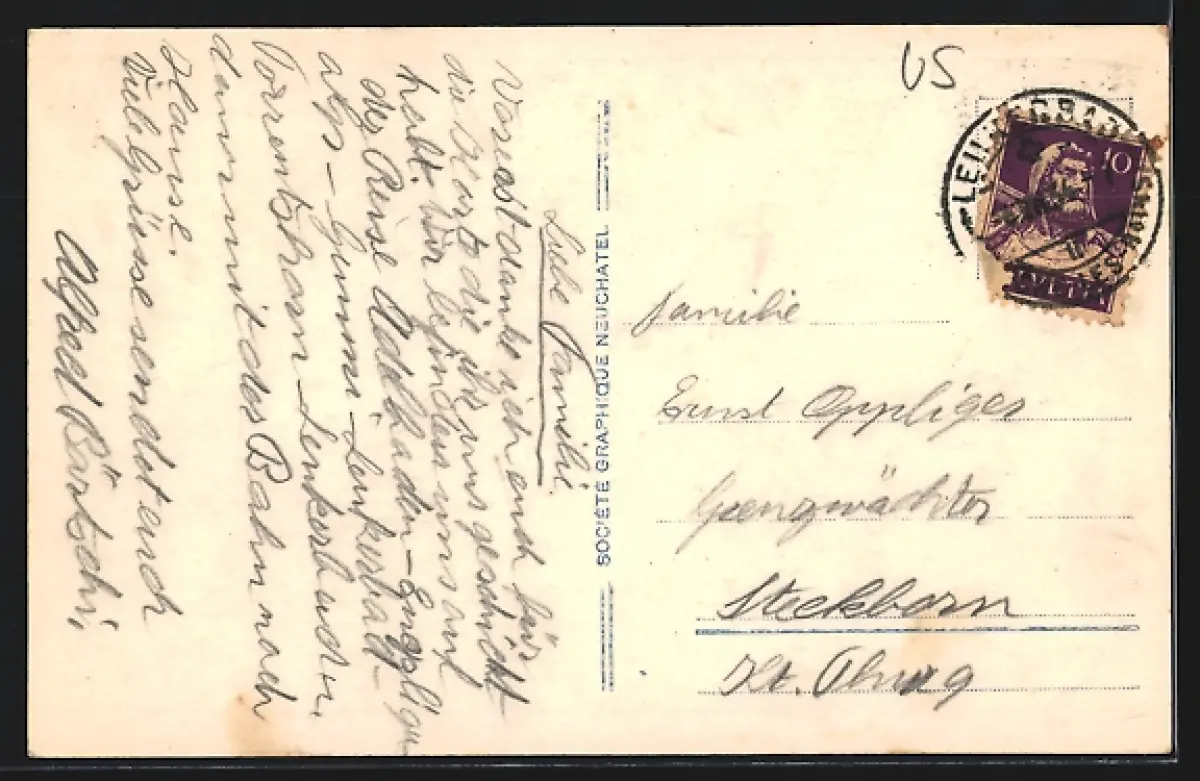 Liebe Familie.
Vorerst danke ich euch für
die Karte die ihr uns geschickt
habt. Wir befinden uns auf
der Reise Adelbaden-Engstligen
alp - Gemmi-Leukerbad-
Torrenthorn-Leukerbad u.
dann mit der Bahn nach
Hause.
Viele Grüsse sendet euch
Alfred Bärtschi.
SOCIÉTÉ GRAPHIQUE NEUCHATEL
US
10
HELVETIA
Familie
Ernst Oppliger
Grenzwächter
Steckborn
Kt. Thurg